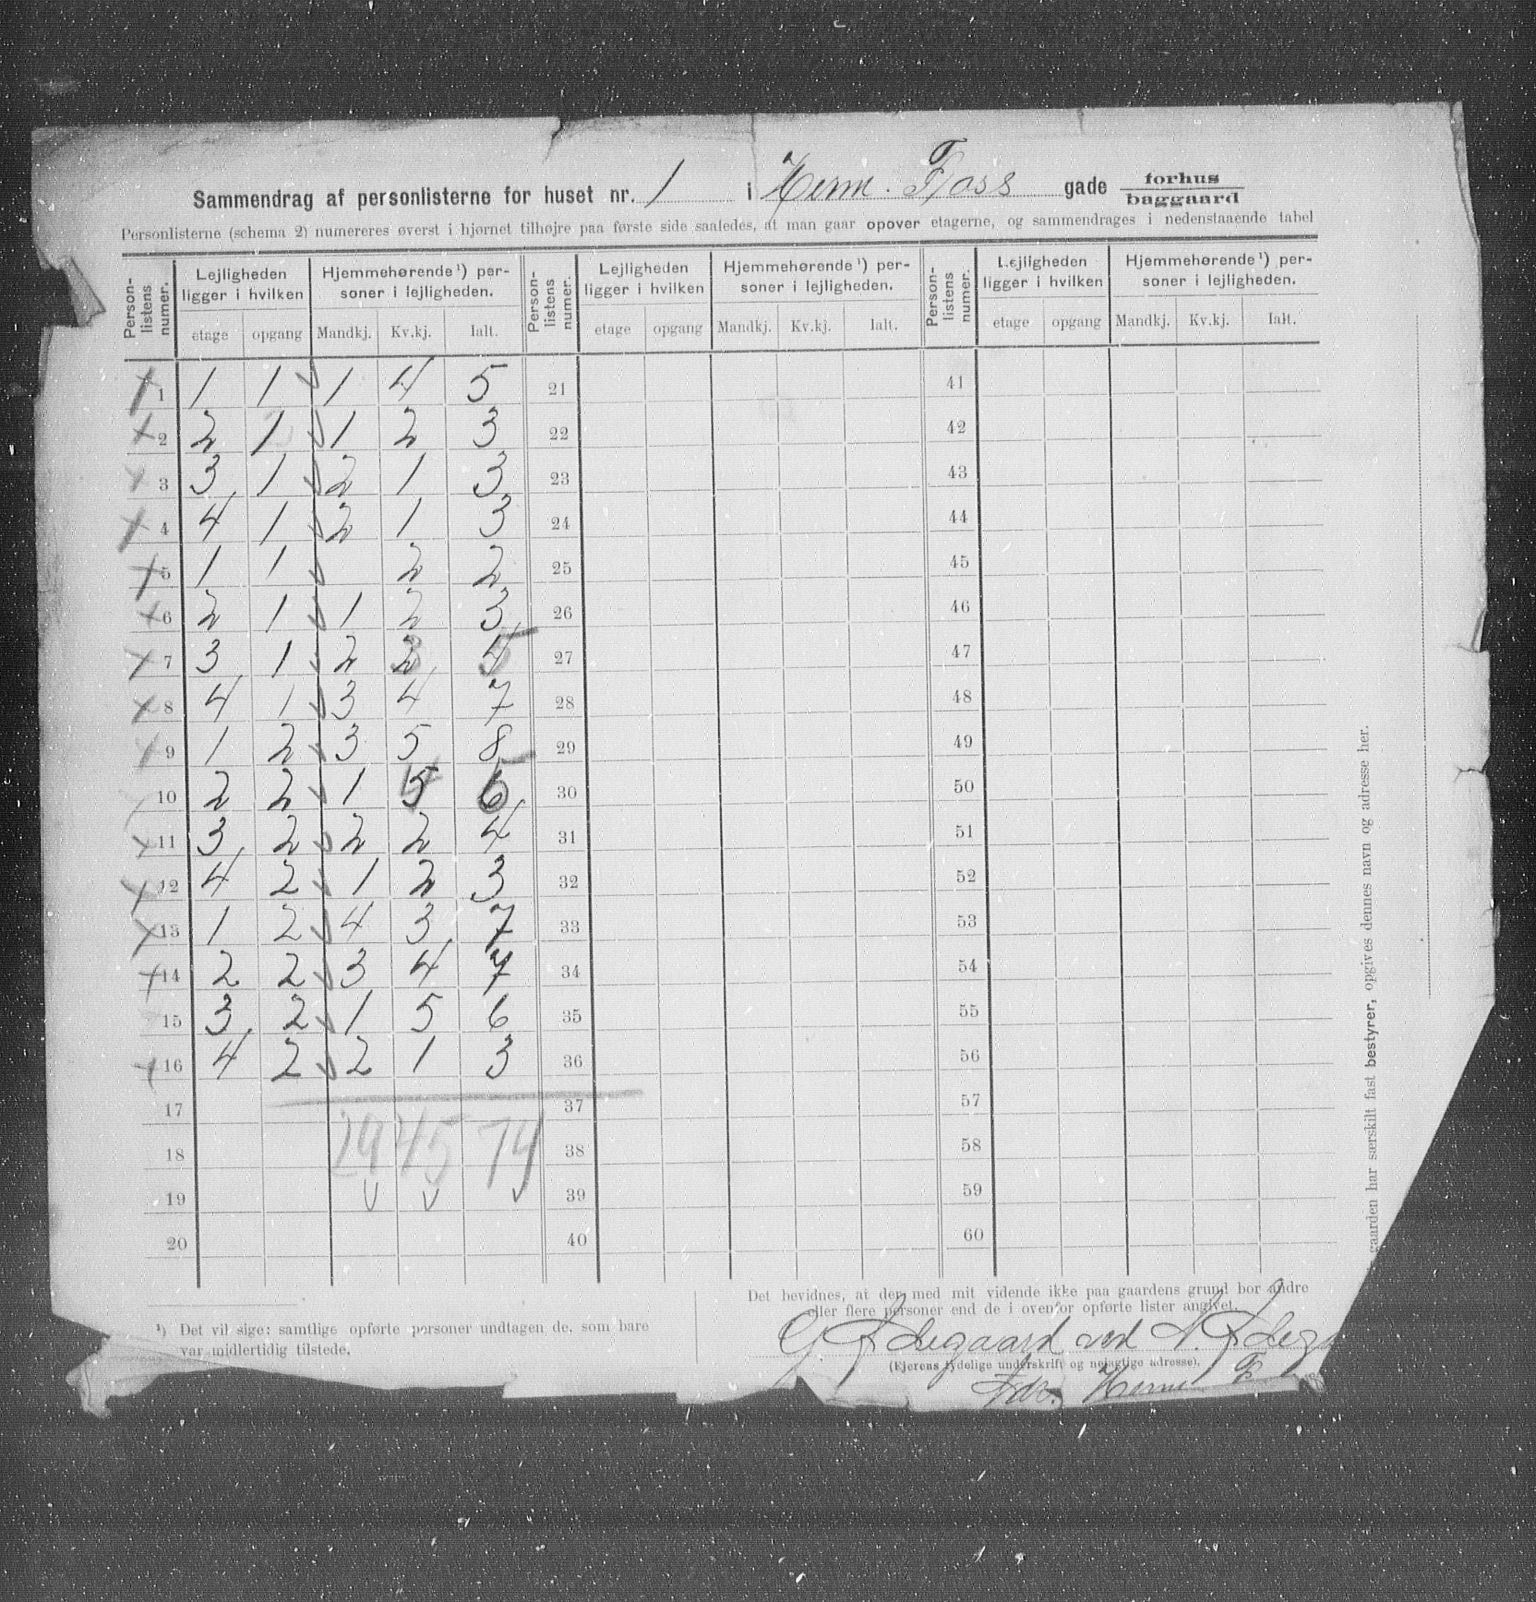 Sammendrag af personlisterne for huset nr. 1 i Herm. Foss gade forhus baggaard
Personlisterne (schema 2) numereres øverst i hjørnet tilhøjre paa første side saaledes, at man gaar opover etagerne, og sammendrages i nedenstaaende tabel
Person-listens numer. Lejligheden ligger i hvilken Hjemmehørende ¹) personer i lejligheden. Person-listens numer. Lejligheden ligger i hvilken Hjemmehørende ¹) personer i lejligheden. Person-listens numer. Lejligheden ligger i hvilken Hjemmehørende ¹) personer i lejligheden.
etage opgang Mandkj. Kv.kj. Ialt. etage opgang Mandkj. Kv.kj. Ialt. etage opgang Mandkj. Kv.kj. Ialt.
1 1 1 1 4 5 21 41
2 2 1 1 2 3 22 42
3 3 1 2 1 3 23 43
4 4 1 2 1 3 24 44
5 1 1 2 2 25 45
6 2 1 1 2 3 26 46
7 3 1 2 3 5 27 47
8 4 1 3 4 7 28 48
9 1 2 3 5 8 29 49
10 2 2 1 4 5 30 50
11 3 2 2 2 4 31 51
12 4 2 1 2 3 32 52
13 1 2 4 3 7 33 53
14 2 2 3 4 7 34 54
15 3 2 1 5 6 35 55
16 4 2 2 1 3 36 56
17 37 57
18 29 45 74 38 58
19 39 59
20 40 60
¹) Det vil sige: samtlige opførte personer undtagen de, som bare
var midlertidig tilstede.
Det bevidnes, at der med mit vidende ikke paa gaardens grund bor andre
eller flere personer end de i ovenfor opførte lister angivet.
G. Ødegaard ved A. Ødeg
(Ejerens tydelige underskrift og nøjagtige adresse).
Adr. Herm F
gaarden har særskilt fast bestyrer, opgives dennes navn og adresse her.